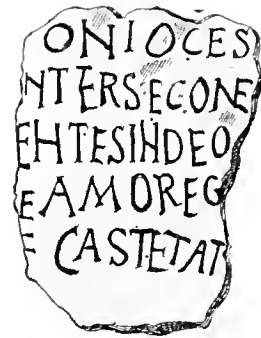 ONIOCES
NTERSECONE
EHTESIHDEO
EAMOREG
E CASTETAT